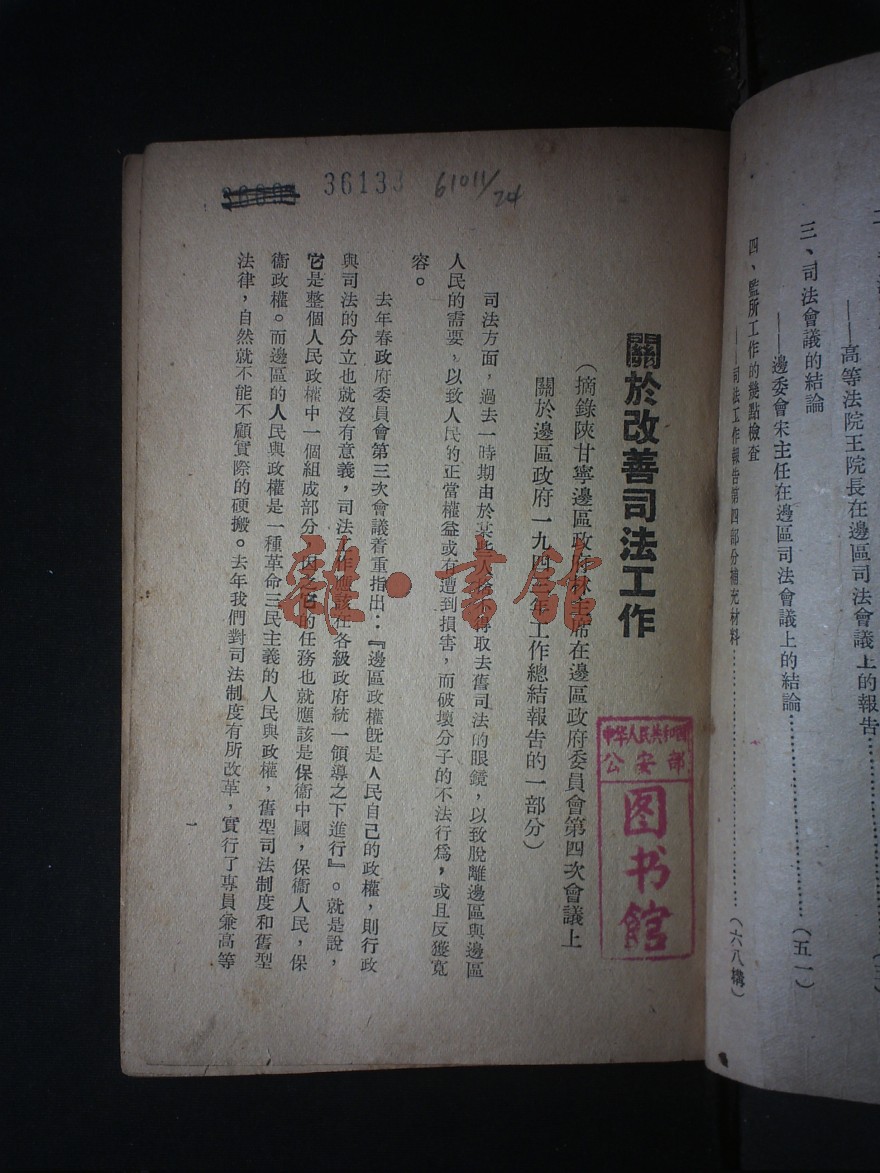 三、司法會議的結論
——高等法院王院長在邊區司法會議上的報告
——邊委會宋主任在邊區司法會議上的結論…………(五一)
四、監所工作的幾點檢查
——司法工作報告第四部分補充材料…………(六八)
36133
61011/24
關於改善司法工作
(摘錄陝甘寧邊區政府林主席在邊區政府委員會第四次會議上
關於邊區政府一九四三年工作總結報告的一部分)
司法方面,過去一時期由於某些人捨不得取去舊司法的眼鏡,以致脫離邊區與邊區
人民的需要,以致人民的正當權益或有遭到損害,而破壞分子的不法行爲,或且反獲寬
容。
去年春政府委員會第三次會議着重指出:『邊區政權旣是人民自己的政權,則行政
與司法的分立也就沒有意義,司法工作應該在各級政府統一領導之下進行』。就是說,
它是整個人民政權中一個組成部分,因之它的任務也就應該是保衞中國,保衞人民,保
衞政權。而邊區的人民與政權是一種革命三民主義的人民與政權,舊型司法制度和舊型
法律,自然就不能不顧實際的硬搬。去年我們對司法制度有所改革,實行了專員兼高等
一
中华人民共和国
公安部
图书馆
雜·書館